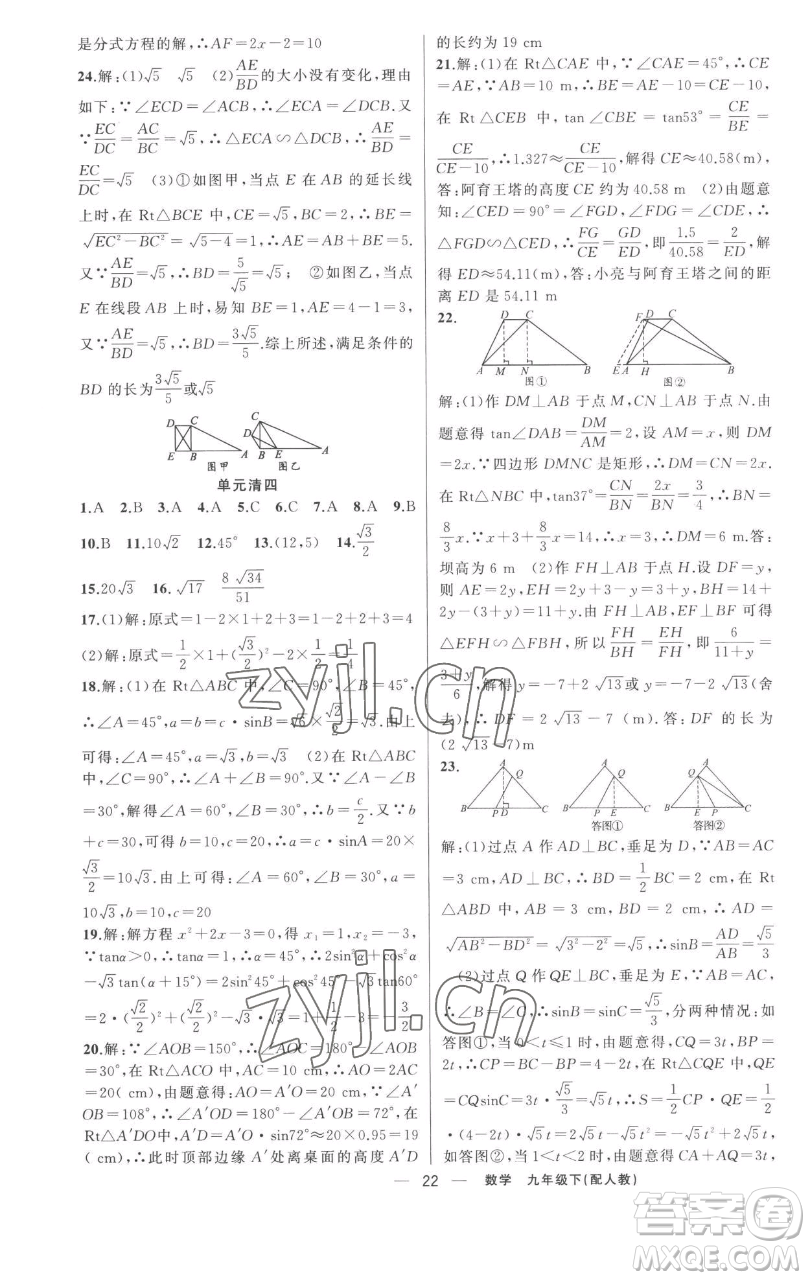 是分式方程的解,∴AF=2x-2=10
24.解:(1)√5 √5 (2)AE/BD的大小没有变化,理由
如下:∵∠ECD=∠ACB,∴∠ECA=∠DCB.又
∵EC/DC=AC/BC=√5,∴△ECA∽△DCB,∴AE/BD=
EC/DC=√5 (3)①如图甲,当点 E 在AB的延长线
上时,在 Rt△BCE 中,CE=√5,BC=2,∴BE=
√(EC²-BC²)=√(5-4)=1,∴AE=AB+BE=5.
又∵AE/BD=√5,∴BD=5/√5=√5; ②如图乙,当点
E 在线段 AB 上时,易知 BE=1,AE=4-1=3,
又∵AE/BD=√5,∴BD=3√5/5.综上所述,满足条件的
BD 的长为3√5/5或√5
D C E B A 图甲
C D B E A 图乙
单元清四
1.A 2.B 3.A 4.A 5.C 6.C 7.A 8.A 9.B
10.B 11.10√2 12.45° 13.(12,5) 14.√3/2
15.20√3 16.√17 8√34/51
17.(1)解:原式=1-2×1+2+3=1-2+2+3=4
(2)解:原式=1/2×1+(√3/2)²-2×1/2=1/2+3/4-1=1/4
18.解:(1)在 Rt△ABC 中,∠C=90°,∠B=45°,
∴∠A=45°,a=c·sinB=√6×√2/2=√3.由上
可得:∠A=45°,a=√3,b=√3 (2)在Rt△ABC
中,∠C=90°,∴∠A+∠B=90°.又∵∠A-∠B=
30°,解得∠A=60°,∠B=30°,∴b=c/2.又∵b
+c=30,可得 b=10,c=20,∴a=c·sinA=20×
√3/2=10√3.由上可得:∠A=60°,∠B=30°,a=
10√3,b=10,c=20
19.解:解方程 x²+2x-3=0,得 x₁=1,x₂=-3,
∵tanα>0,∴tanα=1,∴α=45°,∴2sin²α+cos²α
-√3tan(α+15°)=2sin²45°+cos²45°-√3tan60°
=2·(√2/2)²+(√2/2)²-√3·√3=1+1/2-3=-3/2
20.解:∵∠AOB=150°,∴∠AOC=180°-∠AOB=
30°,在 Rt△ACO 中,AC=10 cm,∴AO=2AC
=20(cm),由题意得:AO=A′O=20 cm,∵∠A′
OB=108°,∴∠A′OD=180°-∠A′OB=72°,在
Rt△A′DO中,A′D=A′O·sin72°≈20×0.95=19
(cm),∴此时顶部边缘 A′处离桌面的高度 A′D
的长约为 19 cm
21.解:(1)在 Rt△CAE 中,∵∠CAE=45°,∴CE
=AE,∵AB=10 m,∴BE=AE-10=CE-10,
在 Rt△CEB 中,tan∠CBE=tan53°=CE/BE=
CE/(CE-10),∴1.327≈CE/(CE-10),解得 CE≈40.58(m),
答:阿育王塔的高度 CE 约为 40.58 m (2)由题意
知:∠CED=90°=∠FGD,∠FDG=∠CDE,∴
△FGD∽△CED,∴FG/CE=GD/ED,即1.5/40.58=2/ED,解
得 ED≈54.11(m),答:小亮与阿育王塔之间的距
离 ED 是 54.11 m
22.
D C A M N B 图①
F D C E A H B 图②
解:(1)作 DM⊥AB 于点 M,CN⊥AB 于点 N.由
题意得 tan∠DAB=DM/AM=2,设 AM=x,则 DM
=2x.∵四边形 DMNC 是矩形,∴DM=CN=2x.
在 Rt△NBC 中,tan37°=CN/BN=2x/BN=3/4,∴BN=
8/3x.∵x+3+8/3x=14,∴x=3,∴DM=6 m.答:
坝高为 6 m (2)作 FH⊥AB 于点 H.设 DF=y,
则 AE=2y,EH=2y+3-y=3+y,BH=14+
2y-(3+y)=11+y.由 FH⊥AB,EF⊥BF 可得
△EFH∽△FBH,所以FH/BH=EH/FH,即6/(11+y)=
(3+y)/6,解得 y=-7+2√13或 y=-7-2√13(舍
去),∴DF=2√13-7(m).答:DF 的长为
(2√13-7)m
23.
A Q B P D C
A Q B P E C 答图①
A Q B E P C 答图②
解:(1)过点 A 作 AD⊥BC,垂足为 D,∵AB=AC
=3 cm,BC=4 cm,∴BD=1/2BC=2 cm,在 Rt
△ABD 中,AB=3 cm,BD=2 cm,∴AD=
√(AB²-BD²)=√(3²-2²)=√5,∴sinB=AD/AB=√5/3
(2)过点 Q 作 QE⊥BC,垂足为 E,∵AB=AC,
∴∠B=∠C,∴sinB=sinC=√5/3,分两种情况:如
答图①,当 0<t≤1 时,由题意得:CQ=3t,BP=
2t,∴CP=BC-BP=4-2t,在 Rt△CQE 中,QE
=CQsinC=3t·√5/3=√5t,∴S=1/2CP·QE=1/2
·(4-2t)·√5t=2√5t-√5t²=-√5t²+2√5t,
如答图②,当 1<t<2 时,由题意得:CQ=
CA+AQ=3t,BP=2t
22
数学 九年级下(配人教)
zyjl.cn
zyjl.cn
答案圈
MXQE.COM